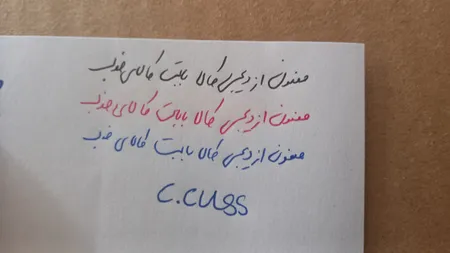 ممنون از دیجی کالا بابت کالای خوب
ممنون از دیجی کالا بابت کالای خوب
ممنون از دیجی کالا بابت کالای خوب
C.CLASS